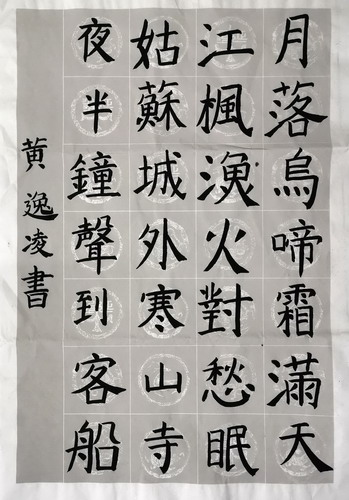 月落烏啼霜滿天
江楓漁火對愁眠
姑蘇城外寒山寺
夜半鐘聲到客船
黄逸凌書